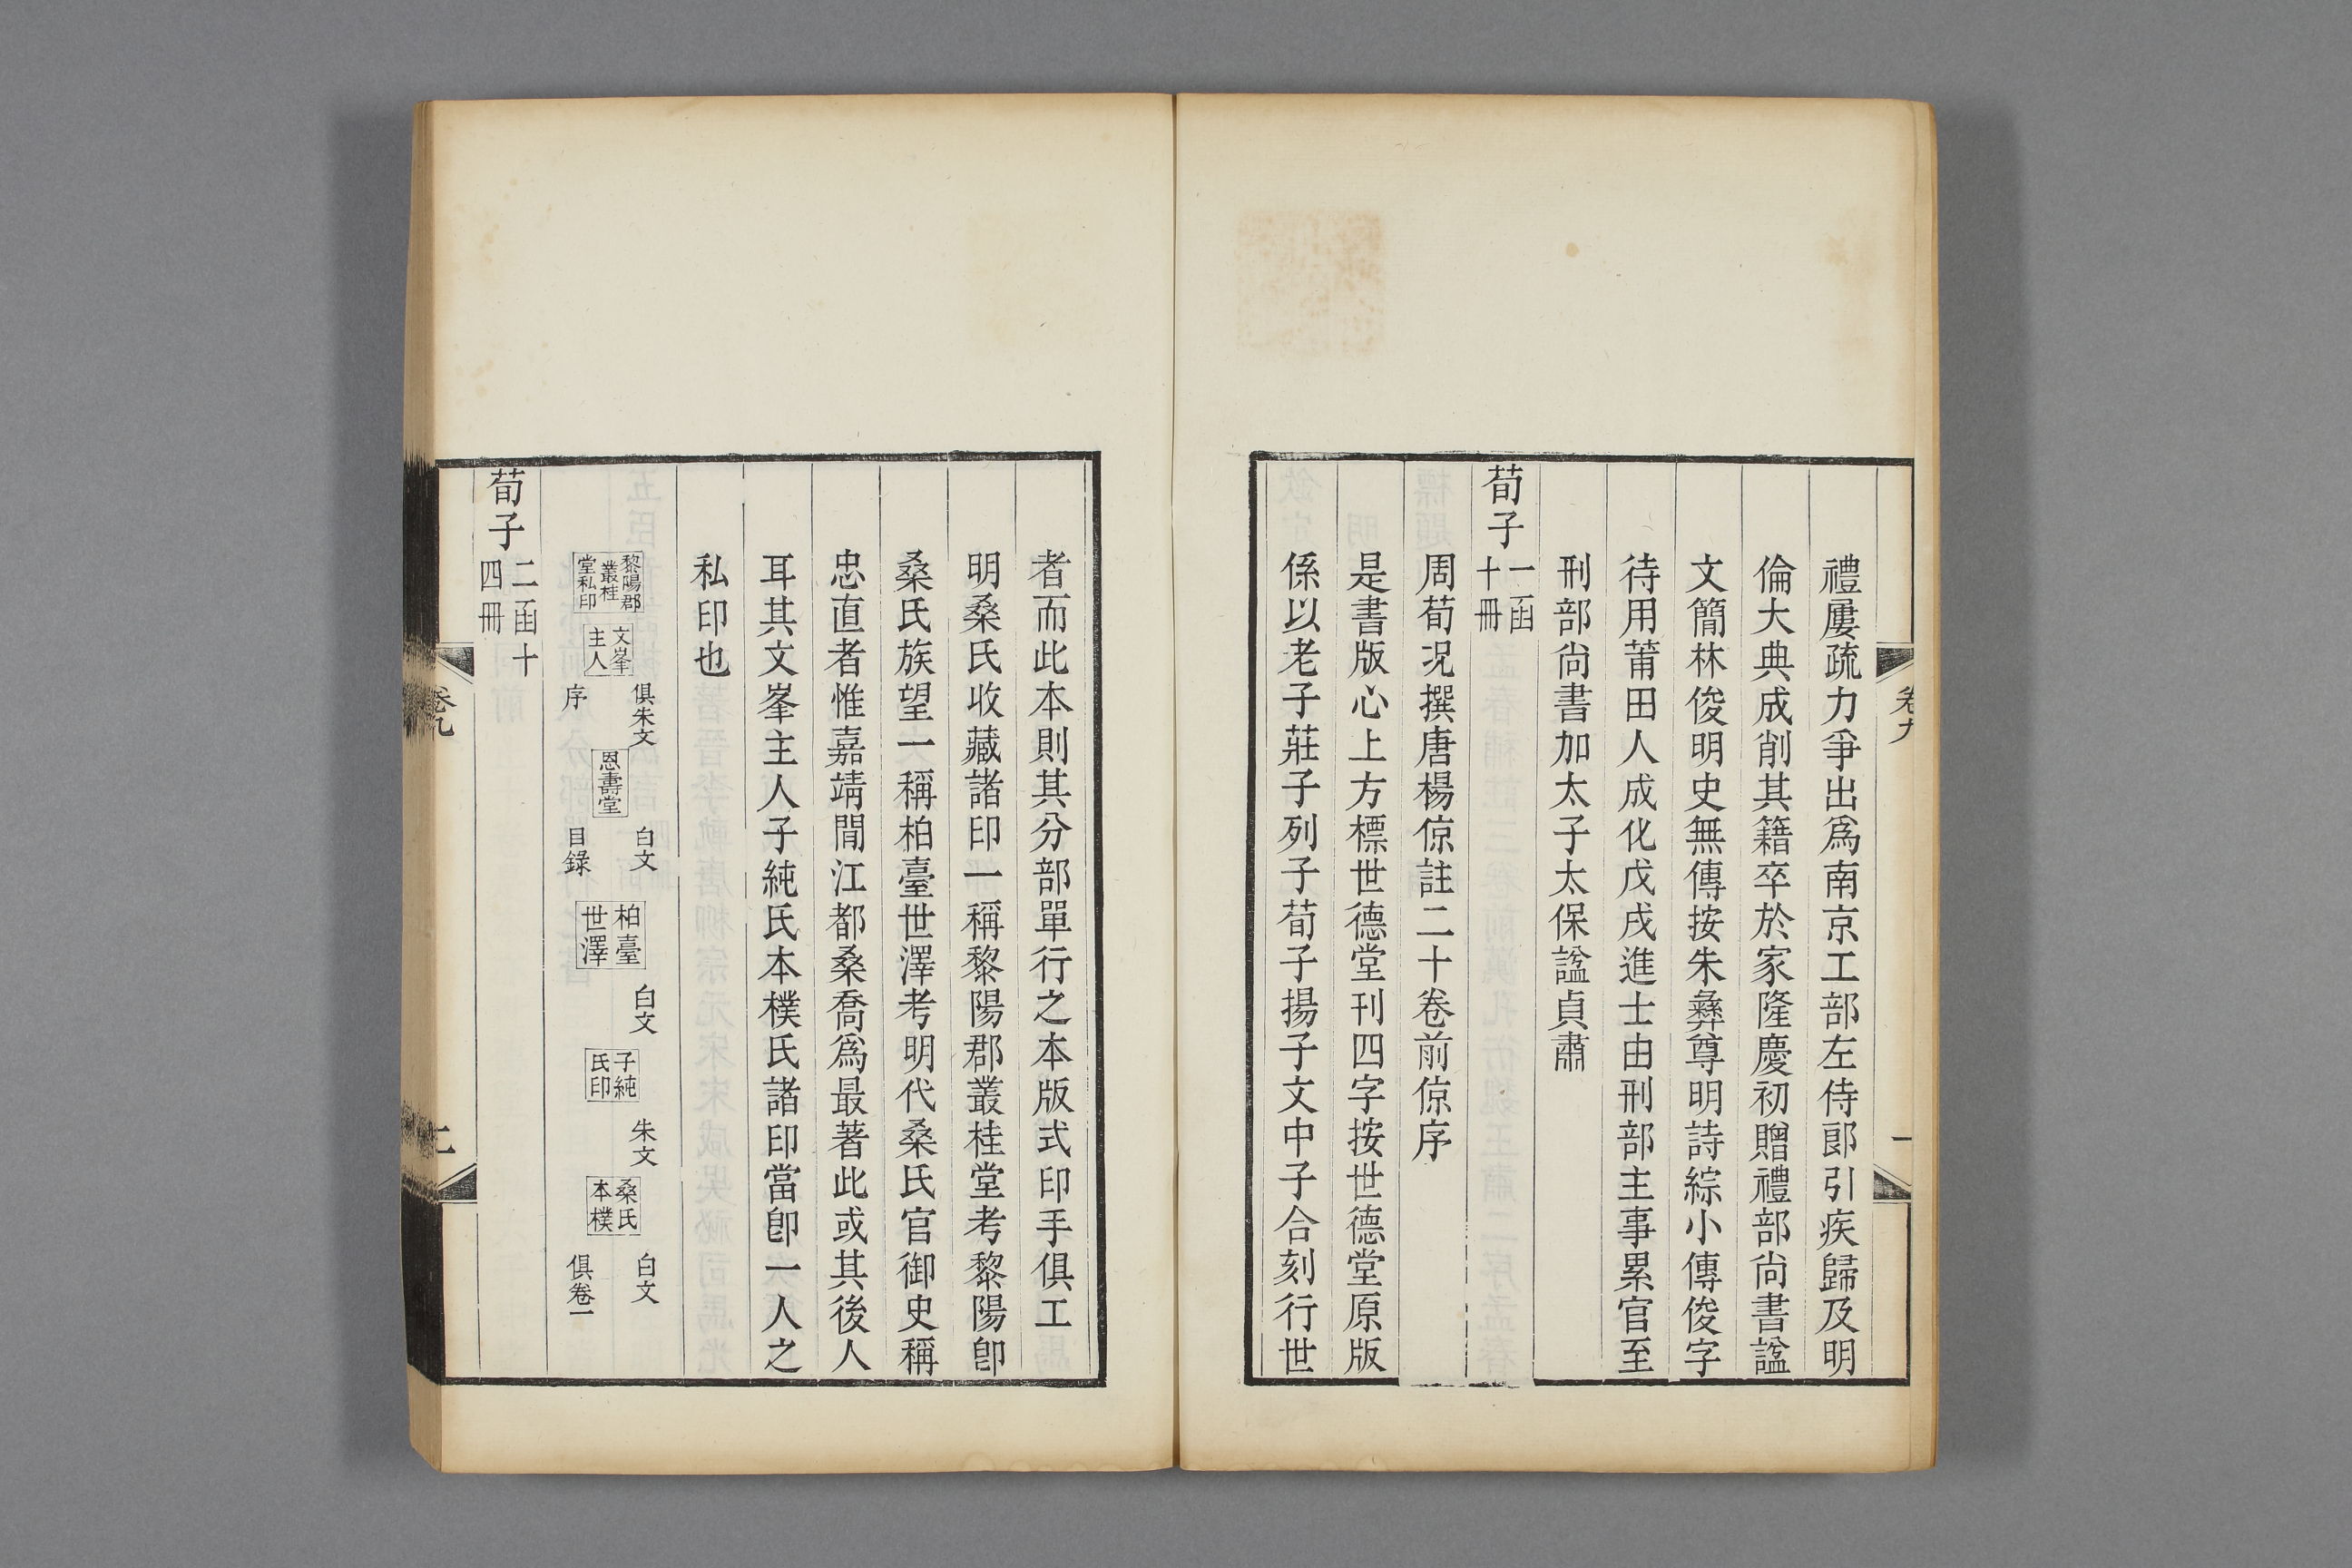 禮屢疏力爭出爲南京工部左侍郎引疾歸及明
倫大典成削其籍卒於家隆慶初贈禮部尚書諡
文簡林俊明史無傳按朱彝尊明詩綜小傳俊字
待用莆田人成化戊戌進士由刑部主事累官至
刑部尚書加太子太保諡貞肅
荀子 一函
十冊
周荀況撰唐楊倞註二十卷前倞序
是書版心上方標世德堂刊四字按世德堂原版
係以老子莊子列子荀子揚子文中子合刻行世
者而此本則其分部單行之本版式印手俱工
明桑氏收藏諸印一稱黎陽郡叢桂堂考黎陽卽
桑氏族望一稱柏臺世澤考明代桑氏官御史稱
忠直者惟嘉靖間江都桑喬爲最著此或其後人
耳其文峯主人子純氏本樸氏諸印當卽一人之
私印也
黎陽郡
叢桂
堂私印
文峯
主人
俱朱文
序
恩壽堂
白文
目錄
柏臺
世澤
白文
子純
氏印
朱文
桑氏
本樸
白文
俱卷一
荀子 二函十
四冊
卷九